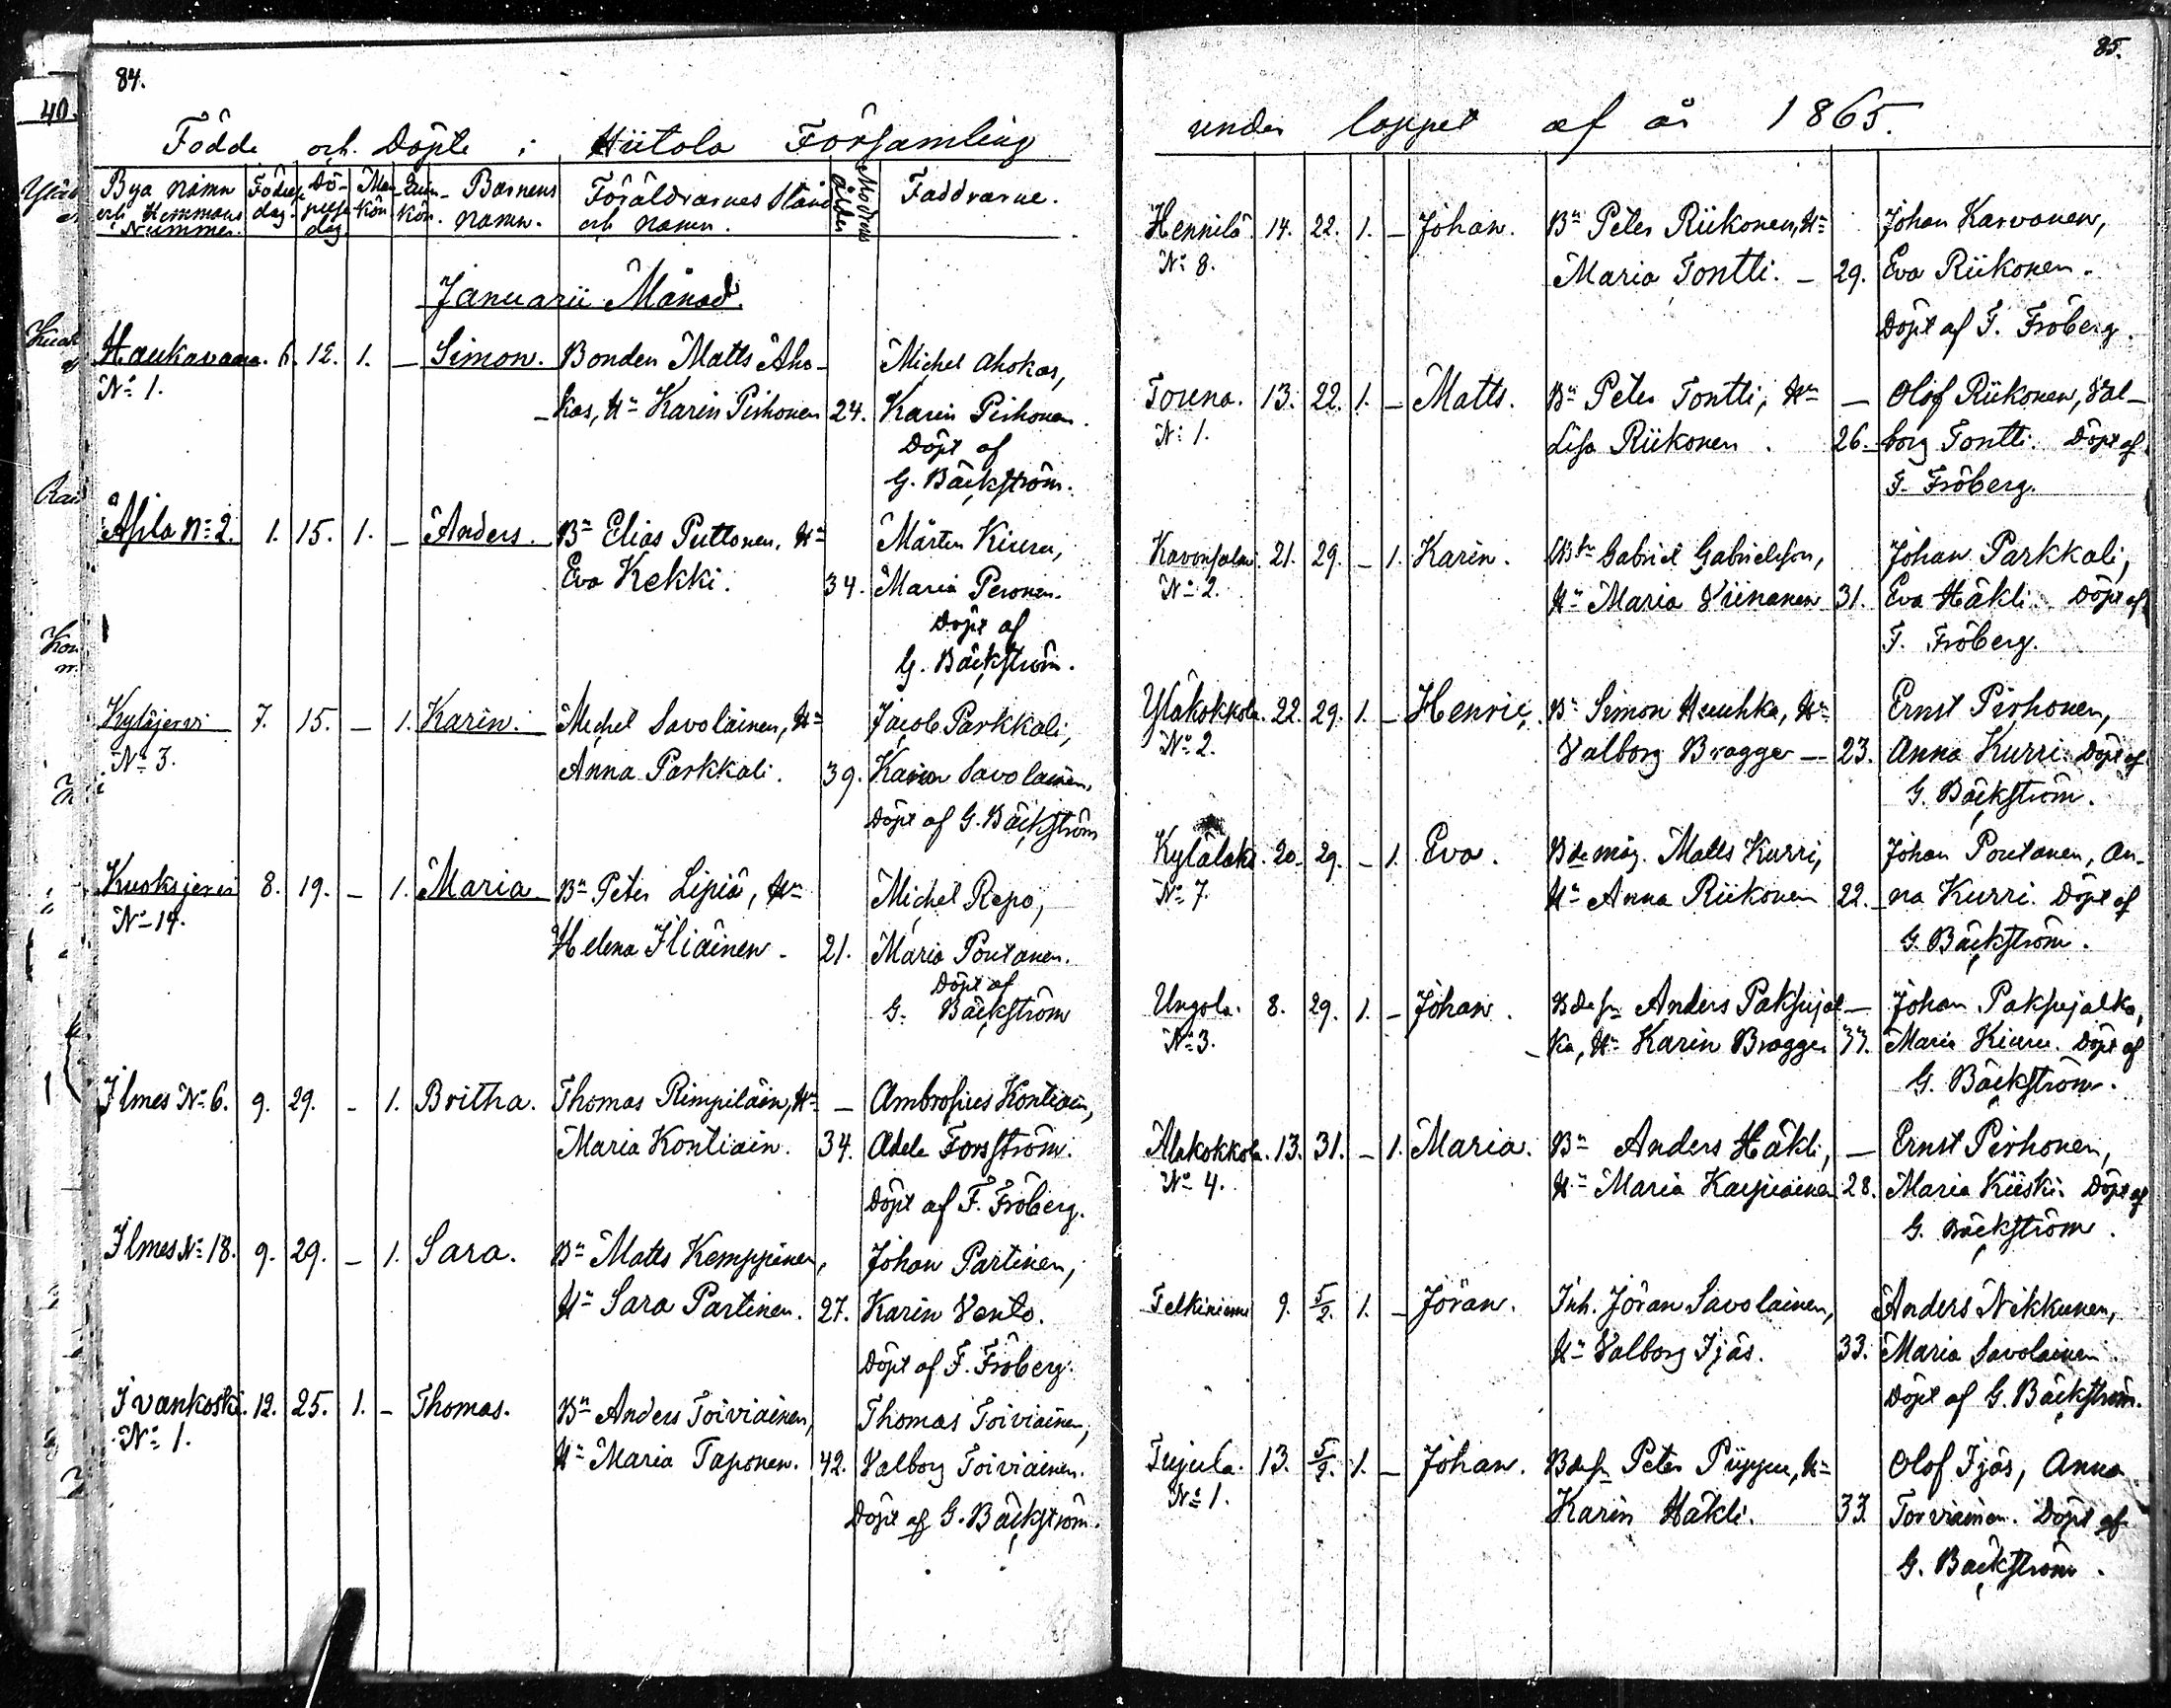 84.
Födde och Döpte i Hiitola Församling
Bya namn och Hemmans Nummer. Födelse dag. Döpelse dag Man kön Quin kön. Barnens namn. Föräldrarnes Stånd och namn. Modrens ålder Faddrarne.
Januarii Månad.
Haukavaara. 6. 12. 1. – Simon. Bonden Matts Aho- Michel Ahokas,
N:o 1. -kas, Hu Karin Pirhonen 24. Karin Pirhonen.
Döpt af
G. Bäckström.
Asila N:o 2. 1. 15. 1. – Anders. Bn Elias Puttonen, Hu Mårten Kiuru,
Eva Kekki. 34. Maria Peronen.
Döpt af
G. Bäckström.
Kyläjervi 7. 15. – 1. Karin. Michel Savolainen, Hu Jacob Parkkali,
N:o 3. Anna Parkkali. 39. Karin Savolainen.
Döpt af G. Bäckström
Kuoksjervi 8. 19. – 1. Maria Bn Peter Lipiä, Hu Michel Repo,
N:o 14. Helena Iliäinen - 21. Maria Poutanen.
Döpt af
G. Bäckström
Ilmes N:o 6. 9. 29. – 1. Britha. Thomas Rimpiläin, Hu – Ambrosius Kontiain,
Maria Kontiain. 34. Adele Forsström.
Döpt af F. Fröberg.
Ilmes N:o 18. 9. 29. – 1. Sara. Bn Matts Kemppinen, Johan Partinen,
Hu Sara Partinen. 27. Karin Vento.
Döpt af F. Fröberg.
Ivankoski. 12. 25. 1. – Thomas. Bn Anders Toiviainen, Thomas Toiviainen,
N:o 1. Hu Maria Taponen. 42. Valborg Toiviainen.
Döpt af G. Bäckström.
85.
under loppet af år 1865.
Hennilä 14. 22. 1. – Johan. Bn Peter Riikonen, Hu Johan Karvonen,
N:o 8. Maria Tontti. – 29. Eva Riikonen.
Döpt af F. Fröberg.
Touna. 13. 22. 1. – Matts. Bn Peter Tontti, Hu – Olof Riikonen, Val-
N:o 1. Lisa Riikonen. 26. borg Tontti. Döpt af
F. Fröberg.
Kavonsalmi. 21. 29. – 1. Karin. Gabriel Gabrielsson, Johan Parkkali,
N:o 2. Hu Maria Viinanen 31. Eva Häkli. Döpt af
F. Fröberg.
Yläkokkola. 22. 29. 1. – Henric. Bn Simon Huuhka, Hu Ernst Pirhonen,
N:o 2. Valborg Bragge – 23. Anna Kurri. Döpt af
G. Bäckström.
Kylälaks. 20. 29. – 1. Eva. Bde måg. Matts Kurri, Johan Poutanen, An-
N:o 7. Hu Anna Riikonen 22. na Kurri. Döpt af
G. Bäckström.
Ungola. 8. 29. 1. – Johan. Bdesn Anders Paksujal- Johan Paksujalka,
N:o 3. -ka, Hu Karin Bragge 33. Maria Kiuru. Döpt af
G. Bäckström.
Alakokkola. 13. 31. – 1. Maria. Bn Anders Häkli, – Ernst Pirhonen,
N:o 4. Hu Maria Karpiainen 28. Maria Kiiski. Döpt af
G. Bäckström.
Telkiniemi 9. 5/2. 1. – Jöran. Inh. Jöran Savolainen, Anders Nikkunen,
Hu Valborg Ijäs. 33. Maria Savolainen.
Döpt af G. Bäckström.
Tiujula. 13. 5/2. 1. – Johan. Bdesn Peter Piippu, Hu Olof Ijäs, Anna
N:o 1. Karin Häkli. 33. Torviainen. Döpt af
G. Bäckström.